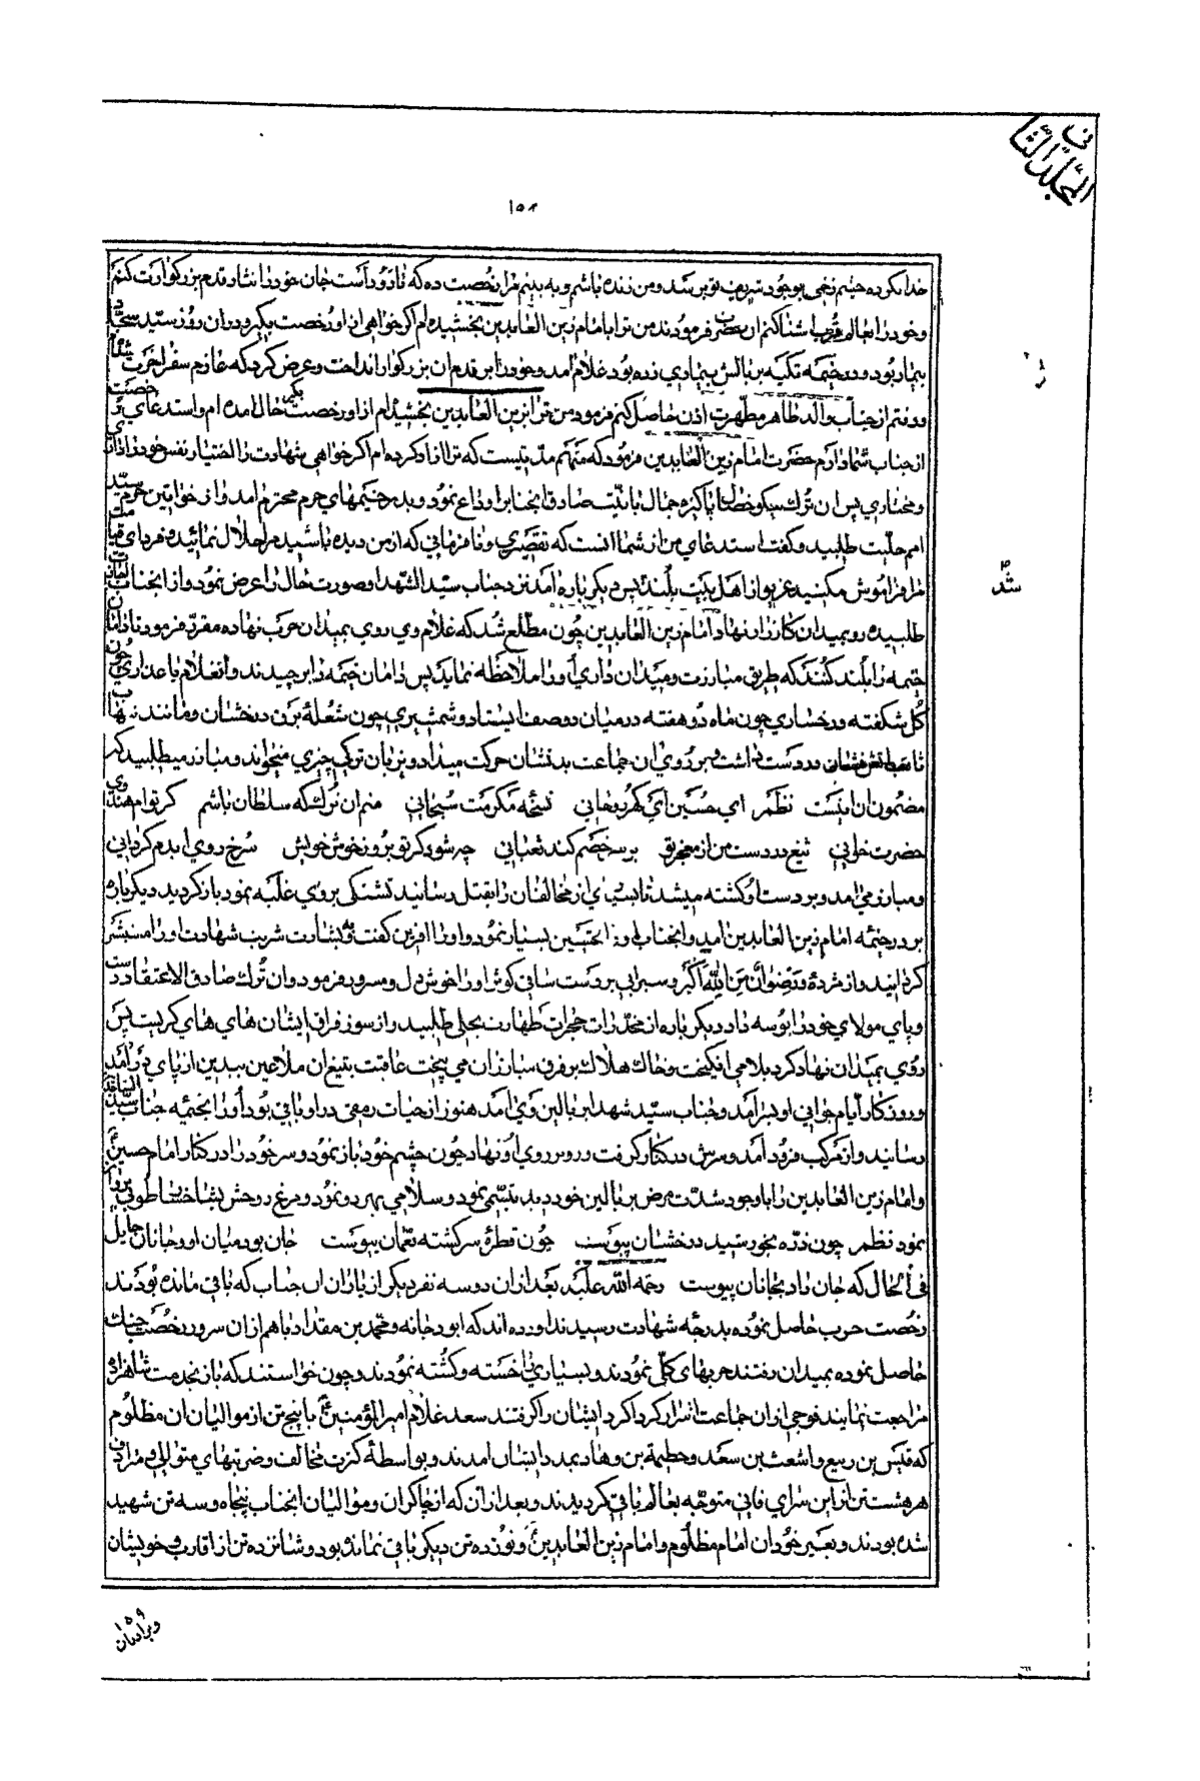 المجلد الثانی
۱۵۸
خدا نکرده چشم زخمی بوجود شریف تو برسد و من زنده باشم و به بینم مرا رخصت ده که تا دود است جان خود را نثار قدم بزرگوارت کنم
و خود را بعالم قرب اشنا کنم ان حضرت فرمودند من ترا بامام زین العابدین بخشیده ام اگر خواهی از او رخصت بگیر و در ان روز سید سجاد
بیمار بود و در خیمه تکیه بر بالش بیماری زده بود غلام آمد و خود را بر قدم ان بزرگوار انداخت و عرض کرد که عازم سفر اخرت شدم
و رفتم از جناب والد طاهر مطهرت اذن حاصل کنم فرمود من ترا بزین العابدین بخشیدم از او رخصت بگیر حال آمده ام و استدعای رخصت
از جناب شما دارم حضرت امام زین العابدین فرمود که منهم مدتیست که ترا ازاد کرده ام اگر خواهی شهادت را اختیار نفس خود را داری
و مختاری پس ان ترک نیکو خصال پاکیزه جمال با نیت صادق انجنابرا وداع نمود و بدر خیمهای حرم محترم امد و از خواتین حرم سید
امم حلیت طلبید و گفت استدعای من از شما انست که تقصیری و نافرمانی که از من دیده باشید مرا حلال نمائید و فردای قیامت
مرا فراموش مکنید غریو از اهل بیت بلند شد پس دیگر باره آمد نزد جناب سید الشهدا و صورت حال را عرض نمود و از انجناب اجازت
طلبیده رو بمیدان کارزار نهاد امام زین العابدین چون مطلع شد که غلام وی روی بمیدان حرب نهاده مقرر فرمود تا دامان
خیمه را بلند کنند که طریق مبارزت و میدان داری او را ملاحظه نماید پس دامان خیمه را بر چیدند و انغلام با عذاری چون
گل شکفته و رخساری چون ماه دو هفته در میان دو صف ایستاد و شمشیری چون شعلهٔ برق درخشان و مانند شهاب
در دست داشت و بر روی ان جماعت بدنشان حرکت میداد و بزبان ترکی چیزی میخواند و مبارز میطلبید که
مضمون ان اینست نظم ای حسین ای گهر نتیجه مکرمت سبحانی منم ان ترک که سلطان باشم گر توام هندوی
حضرت خوانی تیغ در دست من از معجز تو بر سر خصم کند ثعبانی چه شود گر تو بروز خوش خویش سرخ روی ابدم گردانی
و مبارز می امد و بر دست او کشته میشد تا بسیاری از مخالفان را بقتل رسانید تشنگی بر وی غلبه نمود باز گردید دیگرباره
بر در خیمه امام زین العابدین امد و انجناب او را تحسین بسیار نمود و او را افرین گفت و بشارت شربت شهادت او را مبشر
گردانید و از مژدهٔ و رضوان من الله اکبر و سیرابی بر دست ساقی کوثر او را خوش دل و مسرور فرمود و ان ترک صادق الاعتقاد دست
و پای مولای خود را بوسه داد دیگر باره از مخدرات حجرات طهارت بحلی طلبید و از سوز فراق ایشان های های گریست پس
روی بمیدان نهاد گرد بلا می انگیخت و خاک هلاک بر فرق مبارزان می بیخت عاقبت بتیغ ان ملاعین بیدین از پای در آمد
و روزگار ایام جوانی او بسر آمد و جناب سید شهدا بر بالین وی آمد هنوز از حیات رمقی در او باقی بود او را بخیمه جناب سید الساجدین
رسانید و از مرکب فرود آمد و سرش در کنار گرفت و رو بر روی او نهاد چون چشم خود باز نمود و سر خود را در کنار امام حسین
و امام زین العابدین را با وجود شدت مرض بر بالین خود دید تبسمی نمود و سلامی بهر دو نمود و مرغ روحش بشاخسار طوبی پرواز
نمود نظم چون ذره بخورشید درخشان پیوست چون قطرهٔ سرگشته بعمان پیوست جان بود میان او و جانان حایل
فی الحال که جان داد بجانان پیوست رحمه الله علیه بعد از ان دو سه نفر دیگر از یاران ان جناب که باقی مانده بودند
رخصت حرب حاصل نموده بدرجه شهادت رسیدند اورده اند که ابو دجانه و محمد بن مقداد باهم از ان سرور رخصت جنگ
حاصل نموده بمیدان رفتند حربهای کلی نمودند و بسیاری را خسته و کشته نمودند و چون خواستند که باز بخدمت شاهزاده
مراجعت نمایند فوجی از ان جماعت اشرار گرداگرد ایشان را گرفتند سعد غلام امیر المؤمنین ع با پنج تن از موالیان ان مظلوم
که قیس بن ربیع و اشعث بن سعد و حطیمه بن وهاد بمدد ایشان امدند و بواسطهٔ کثرت مخالف و ضربتهای متوالی و مترادف
هر هشت تن از این سرای فانی متوجه بعالم باقی گردیدند و بعد از ان که از چاکران و موالیان انجناب پنجاه و سه تن شهید
شده بودند و بغیر خود ان امام مظلوم و امام زین العابدین ع و نوزده تن دیگر باقی نمانده بود و شانزده تن از اقارب و خویشان
۱۵۹
و برادران